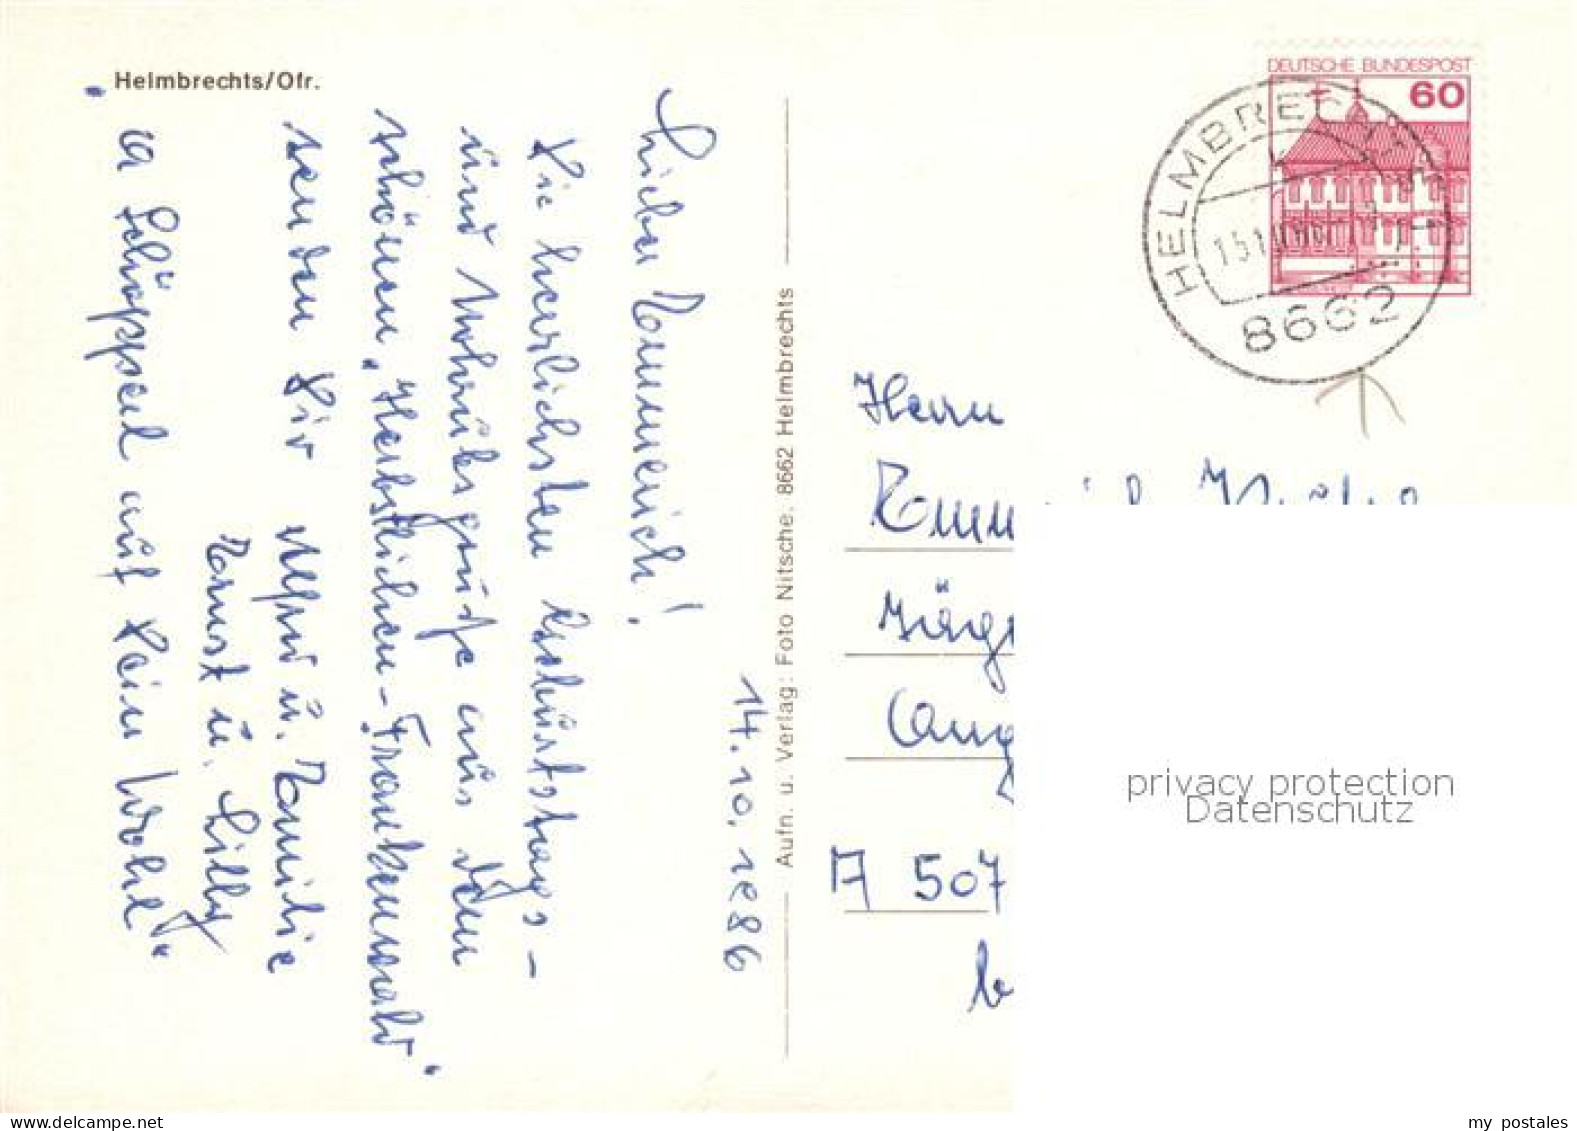 Helmbrechts/Ofr.
Lieber Emmerich!
Die herzlichsten Geburtstags-
und Wohnübergrüße aus dem
schönen "Herbstlichen-Frankenwald"
senden Dir Alfred u. Familie
Ernst u. Lilly
"a Schöppel auf Dein Wohl"
14.10.1986
Aufn. u. Verlag: Foto Nitsche, 8662 Helmbrechts
DEUTSCHE BUNDESPOST
60
HELMBRECHTS
8662
Herrn
A 507
privacy protection
Datenschutz
my postales